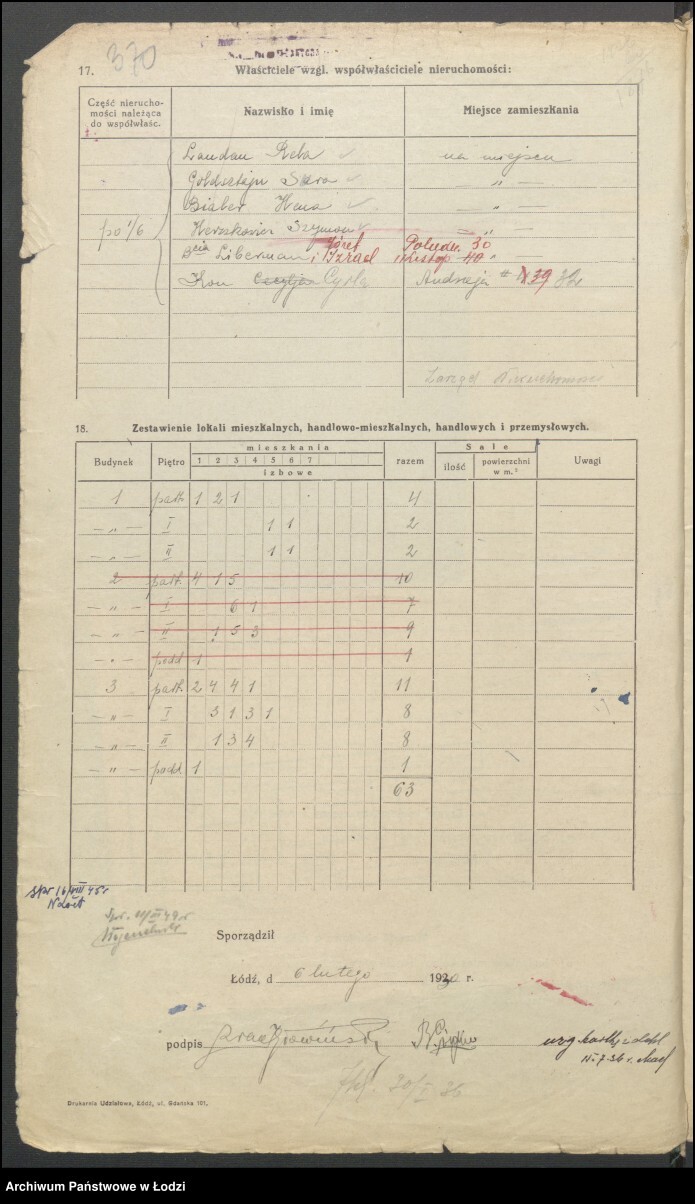 370
17. Właściciele wzgl. współwłaściciele nieruchomości:
Część nierucho-
mości należąca
do współwłaśc.
Nazwisko i imię
Miejsce zamieszkania
Landau Reba na miejscu
Goldsztajn Sara — „ —
Bialer Hana — „ —
po 1/6 Herszkowicz Szymon — „ —
Józef Połudn. 30
Bcia Liberman i Izrael 11 Listop. 40 „ —
Kon Cecylja Cyrla Andrzeja # 39
Zarząd Nieruchomości
18. Zestawienie lokali mieszkalnych, handlowo-mieszkalnych, handlowych i przemysłowych.
Budynek Piętro mieszkania razem Sale Uwagi
1 2 3 4 5 6 7
izbowe
ilość powierzchni
w m.²
1 part. 1 2 1 4
— „ — I 1 1 2
— „ — II 1 1 2
2 part. 4 1 5 10
— „ — I 6 1 7
— „ — II 1 5 3 9
— „ — podd 1 1
3 part. 2 4 4 1 11
— „ — I 3 1 3 1 8
— „ — II 1 3 4 8
— „ — podd 1 1
63
Spr 16/VIII 45 r
Spr. 10/III 49 r
Sporządził
Łódź, d 6 lutego 1930 r.
podpis
11.7.36 r.
20/I 36
Drukarnia Udziałowa, Łódź, ul. Gdańska 101.
Archiwum Państwowe w Łodzi